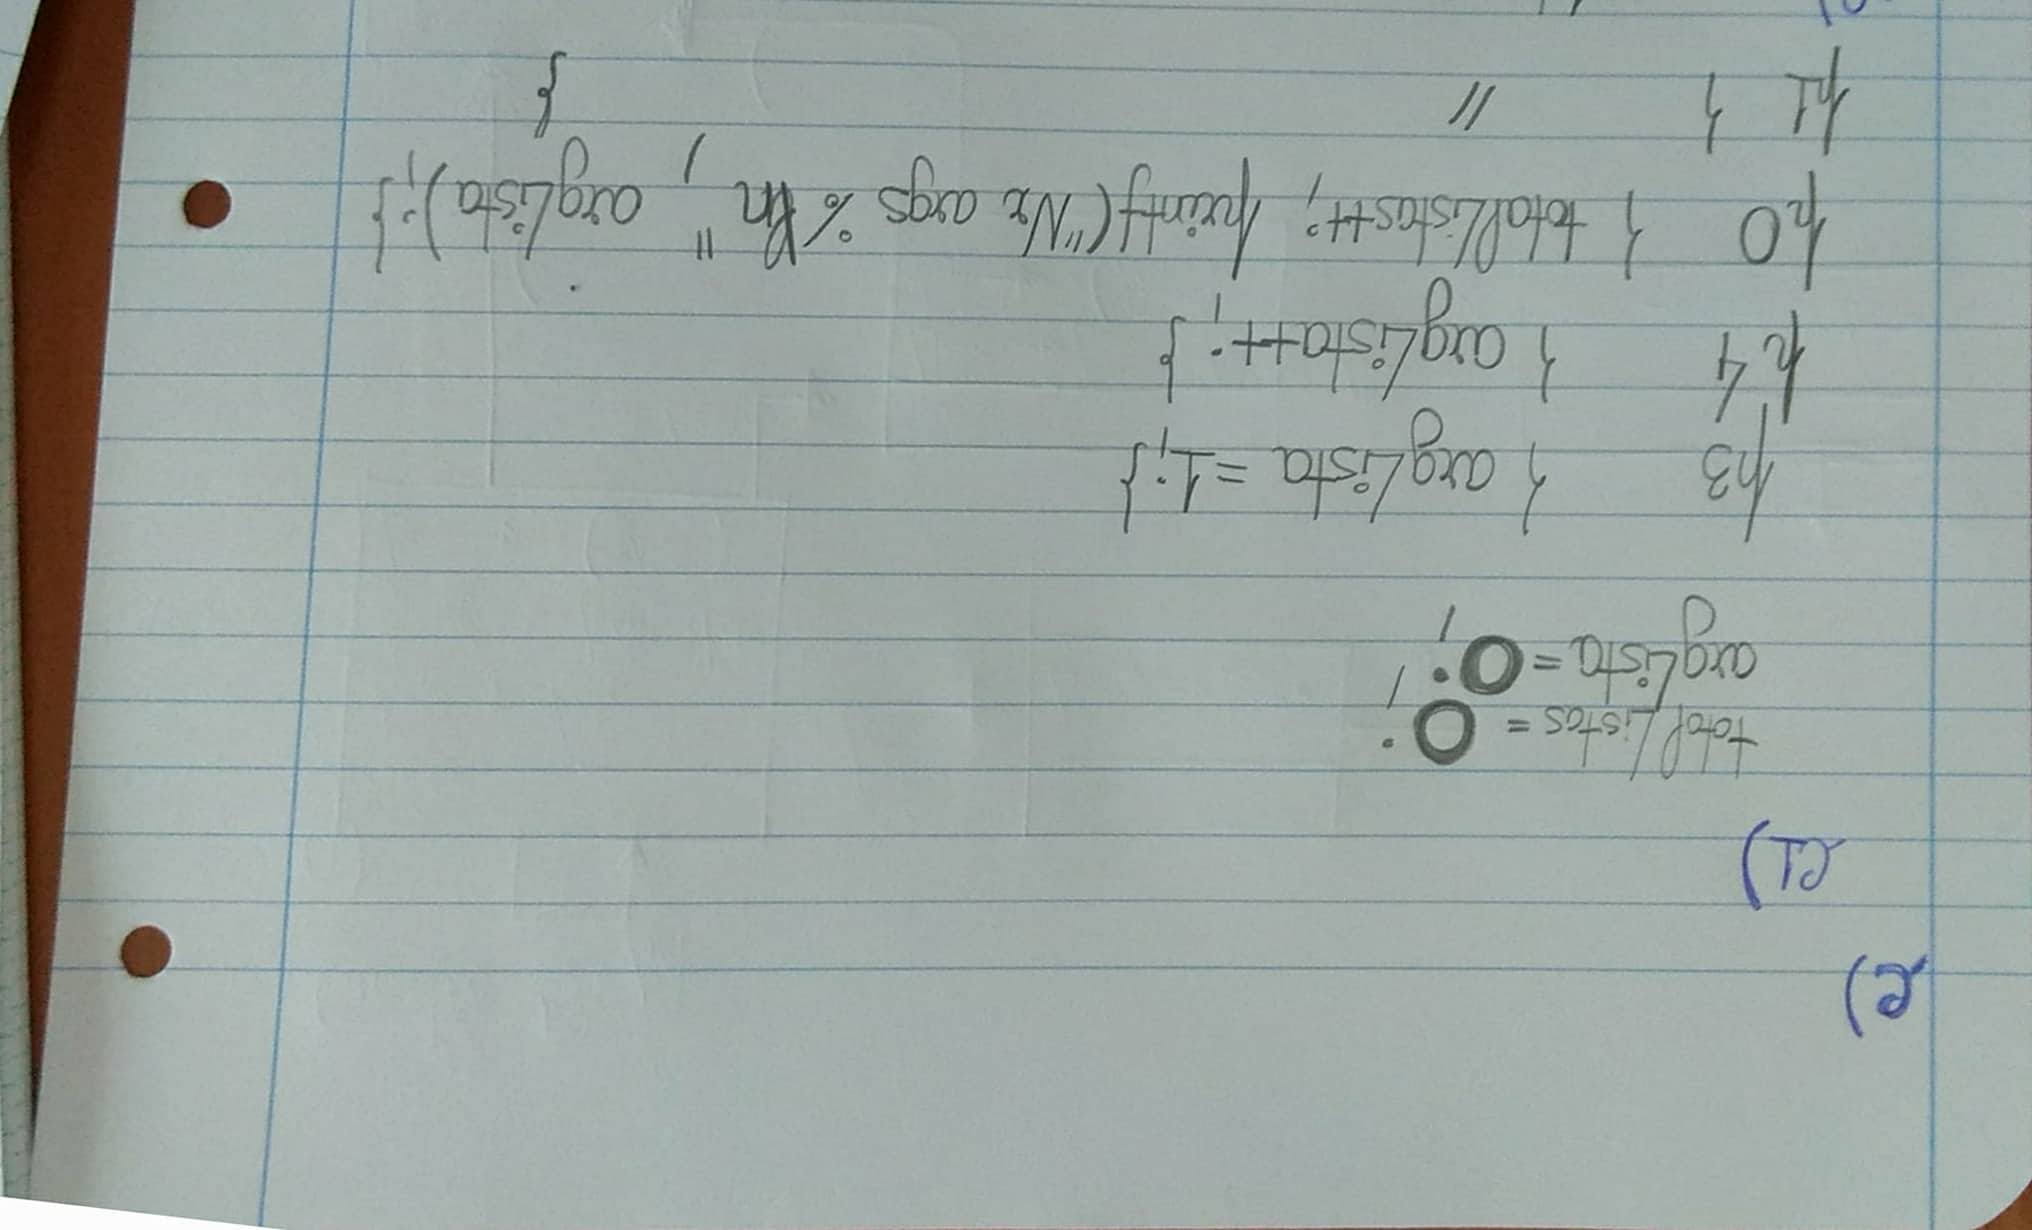 e)
e1)
totalListas = 0;
argLista = 0;
p3 { argLista = 1; }
p4 { argLista++; }
p0 { totalListas++; printf("Nr args %\n", argLista); }
p1 { // }